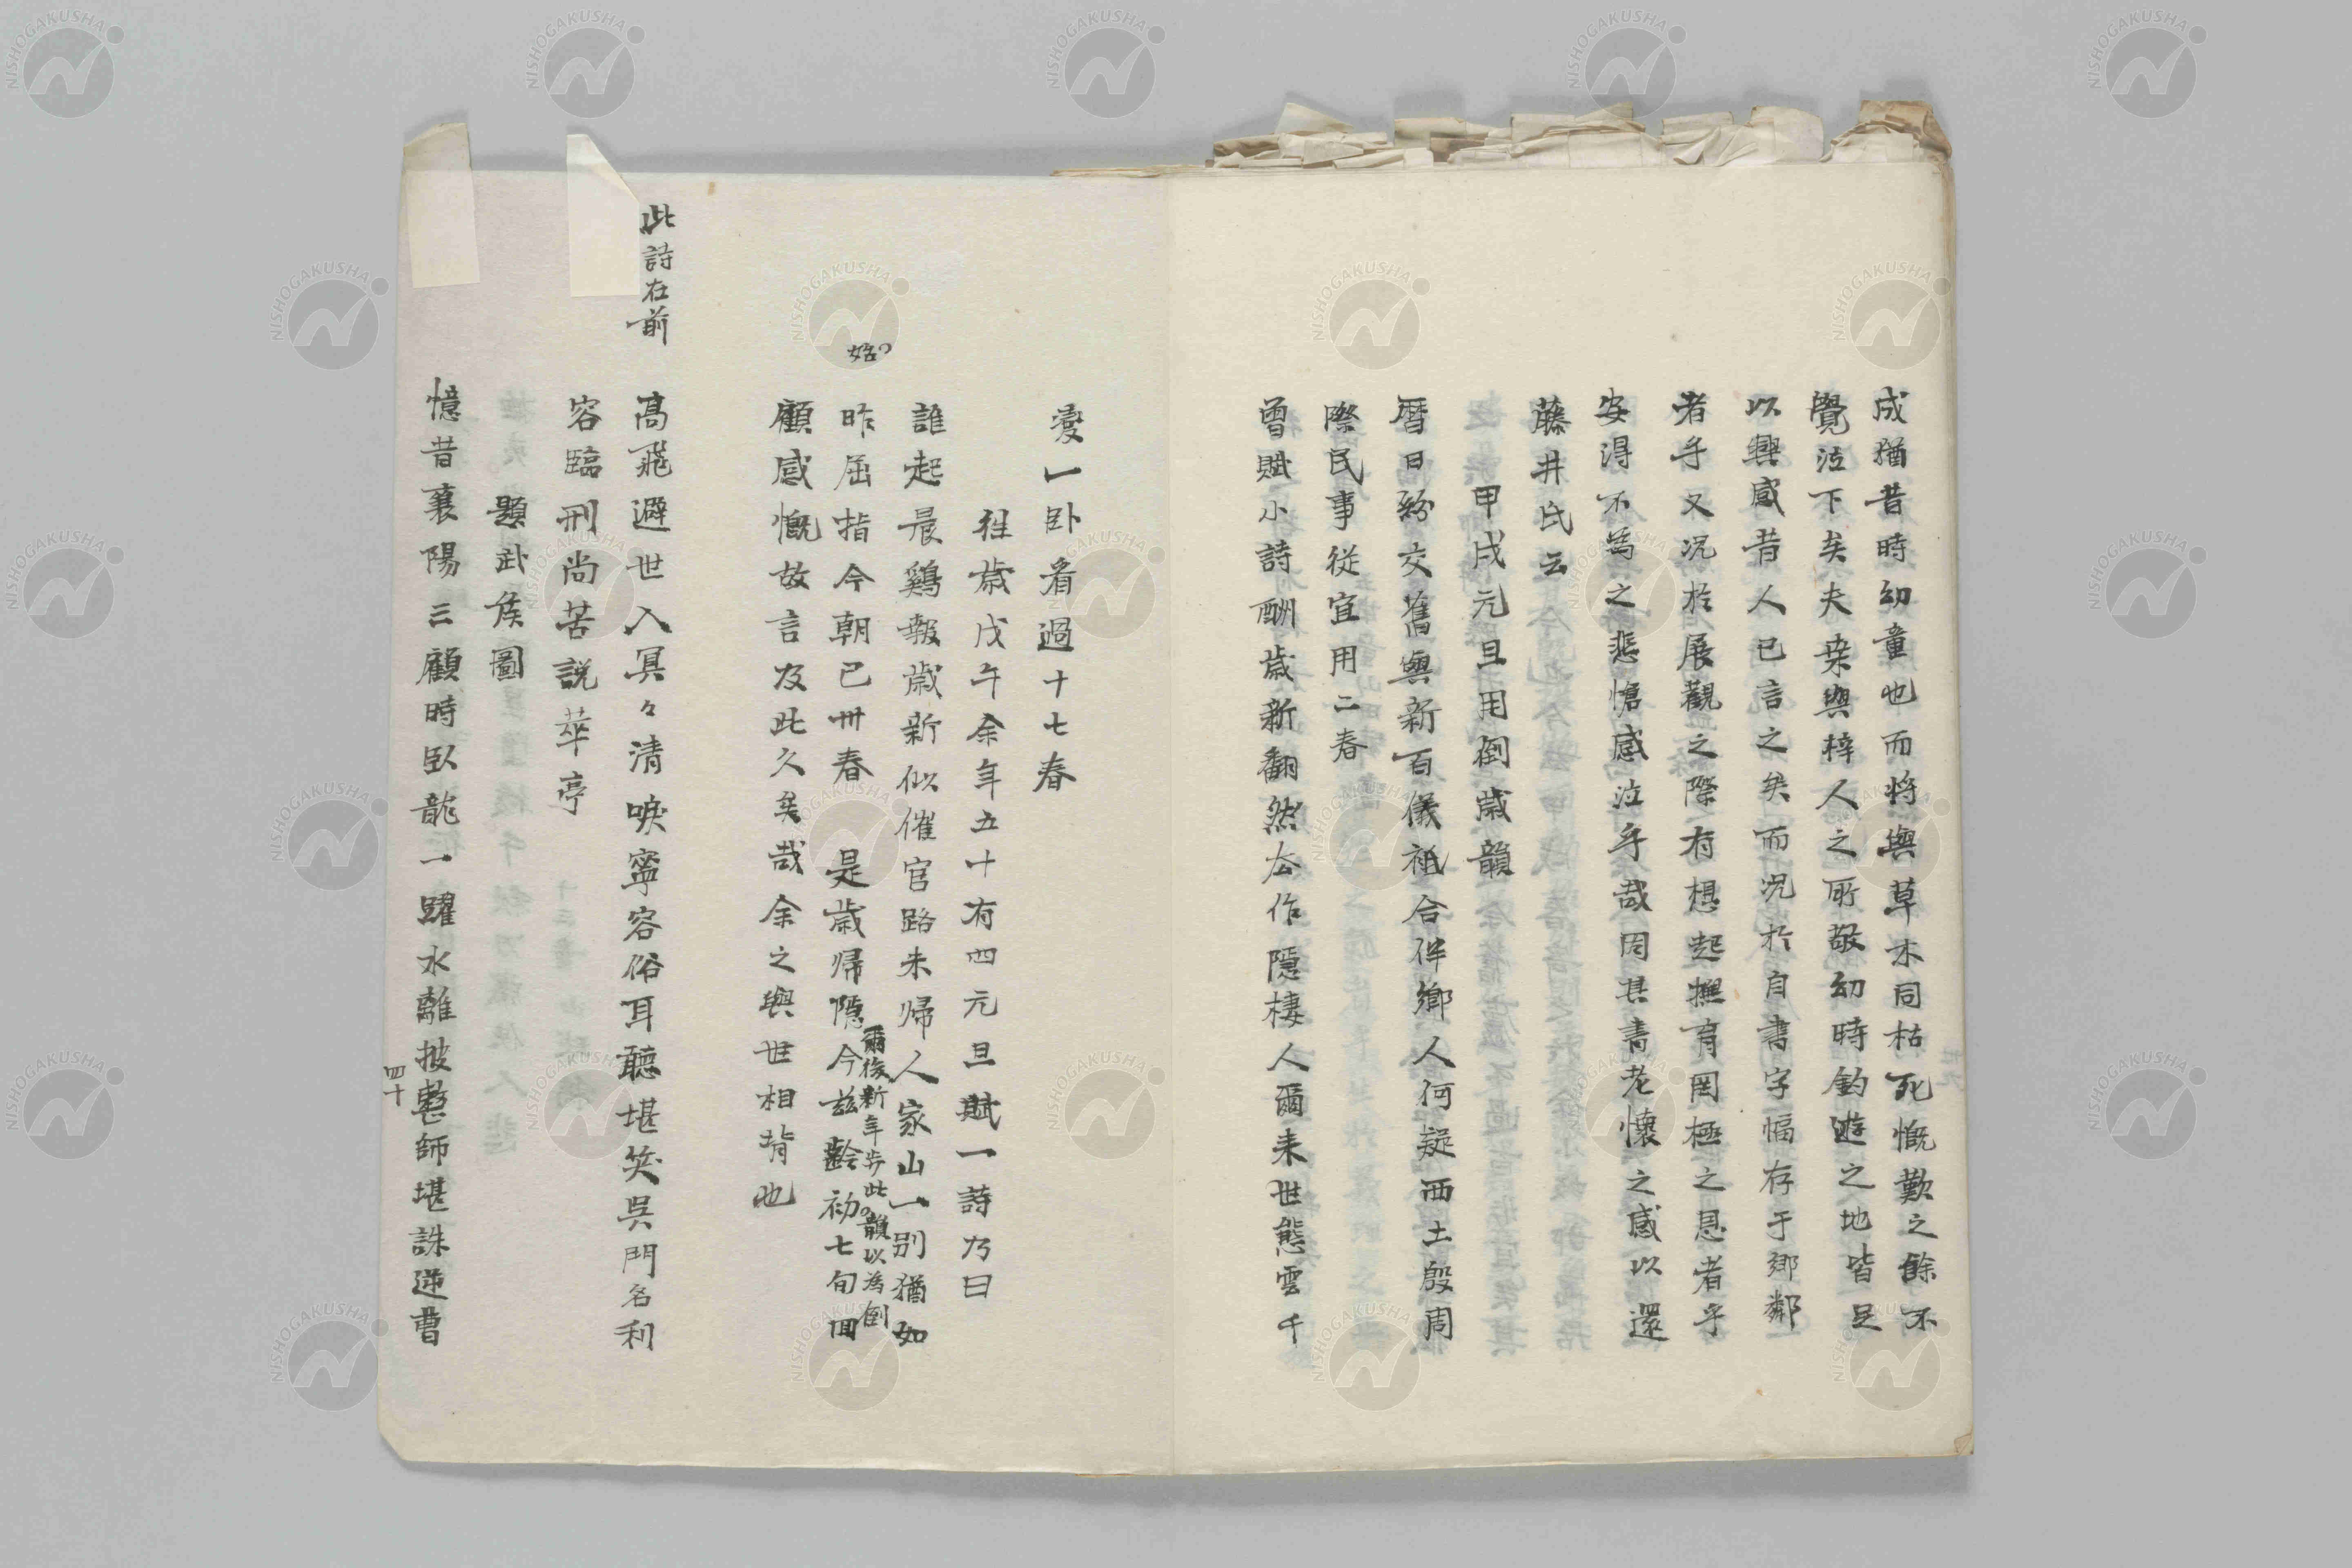 成猶昔時幼童也而將與草木同枯死慨歎之餘不
覺泣下矣夫桒與梓人之所敬幼時釣遊之地皆足
以興感昔人已言之矣而況於自書字幅存于鄉鄰
者乎又況於展觀之際有想起撫育罔極之恩者乎
安得不為之悲愴感泣乎哉因其書老懷之感以還
藤井氏云
甲戌元旦用倒歲韻
曆日紛交舊與新百儀祗合伴鄉人何疑西土殷周
際民事從宜用二春
曾賦小詩酬歲新翻然左作隱棲人爾来世態雲千
變一卧看過十七春
往歲戊午余年五十有四元旦賦一詩乃曰
誰起晨鷄報歲新似催官路未帰人家山一別猶如
昨屈指今朝已卅春 是歲帰隱今茲齡初七旬回
爾後新年步此韻以為倒
顧感慨故言及此久矣哉余之與世相背也
始
此詩在前
高飛避世入冥々清唳寧容俗耳聽堪笑吳門名利
容臨刑尚苦説華亭
題武矦圖
憶昔襄陽三顧時臥龍一躍水離披整師堪誅逆曹
四十
NISHOGAKUSHA